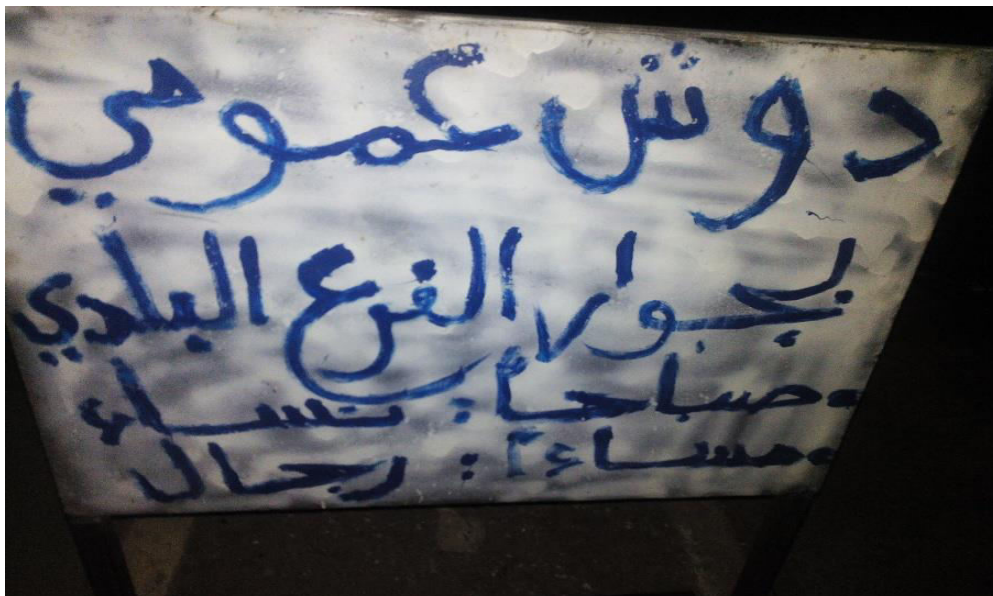 دوش عمومي
بجوار الفرع البلدي
صباحاً : نساء
مساءاً : رجال